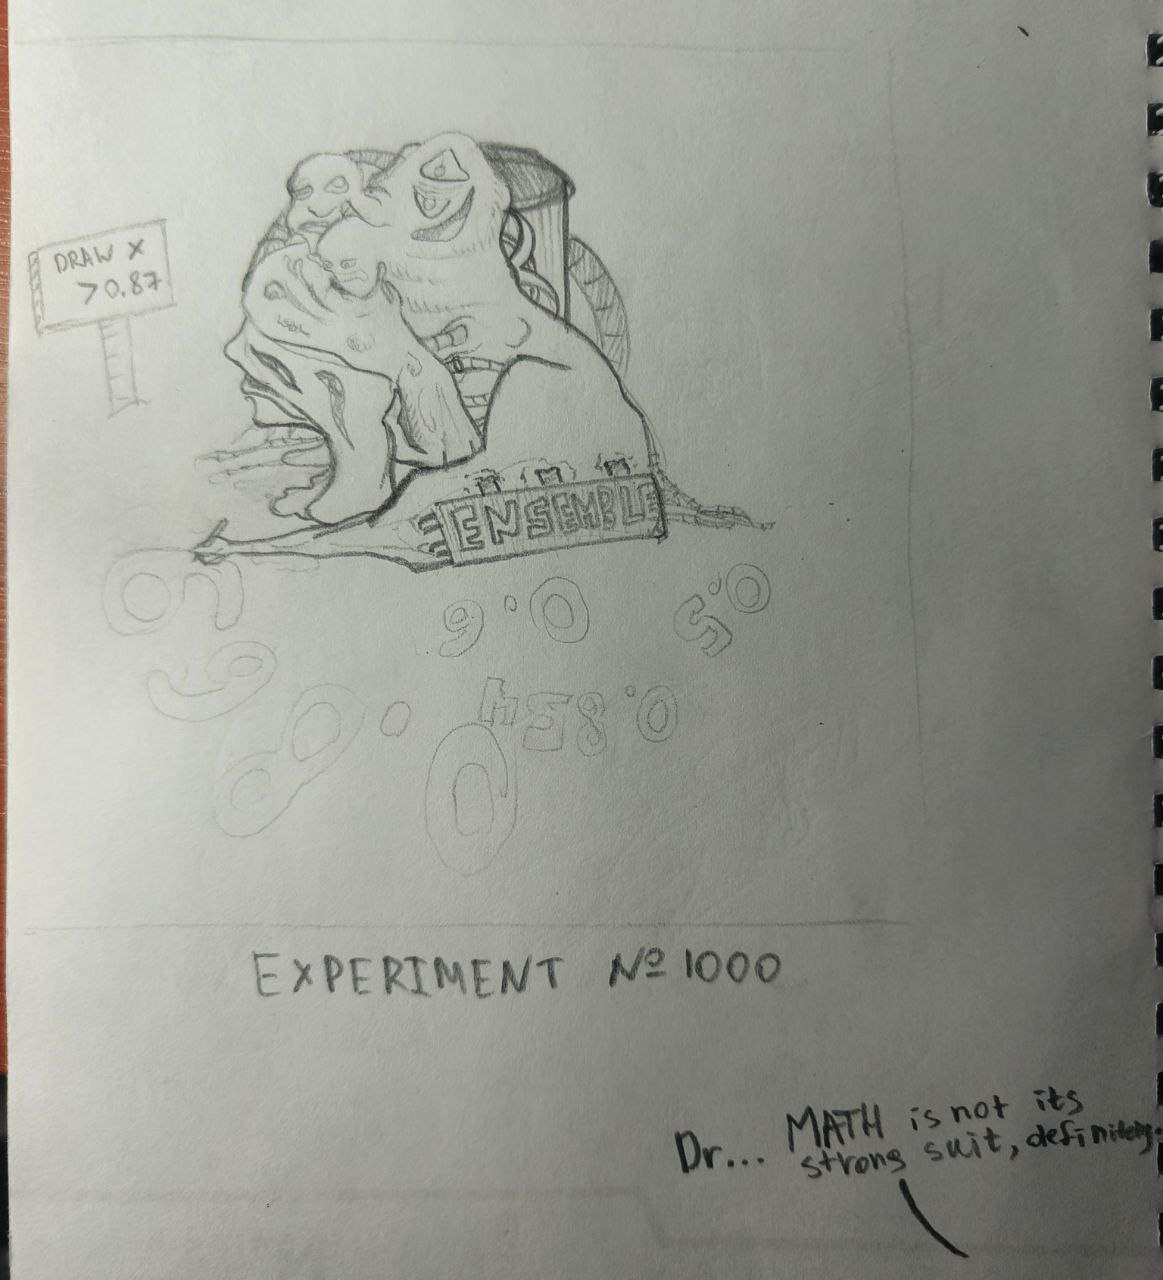 DRAW X
>0.87
ENSEMBLE
0.6
0.5
0.834
EXPERIMENT № 1000
Dr... MATH is not its
strong suit, definitely.